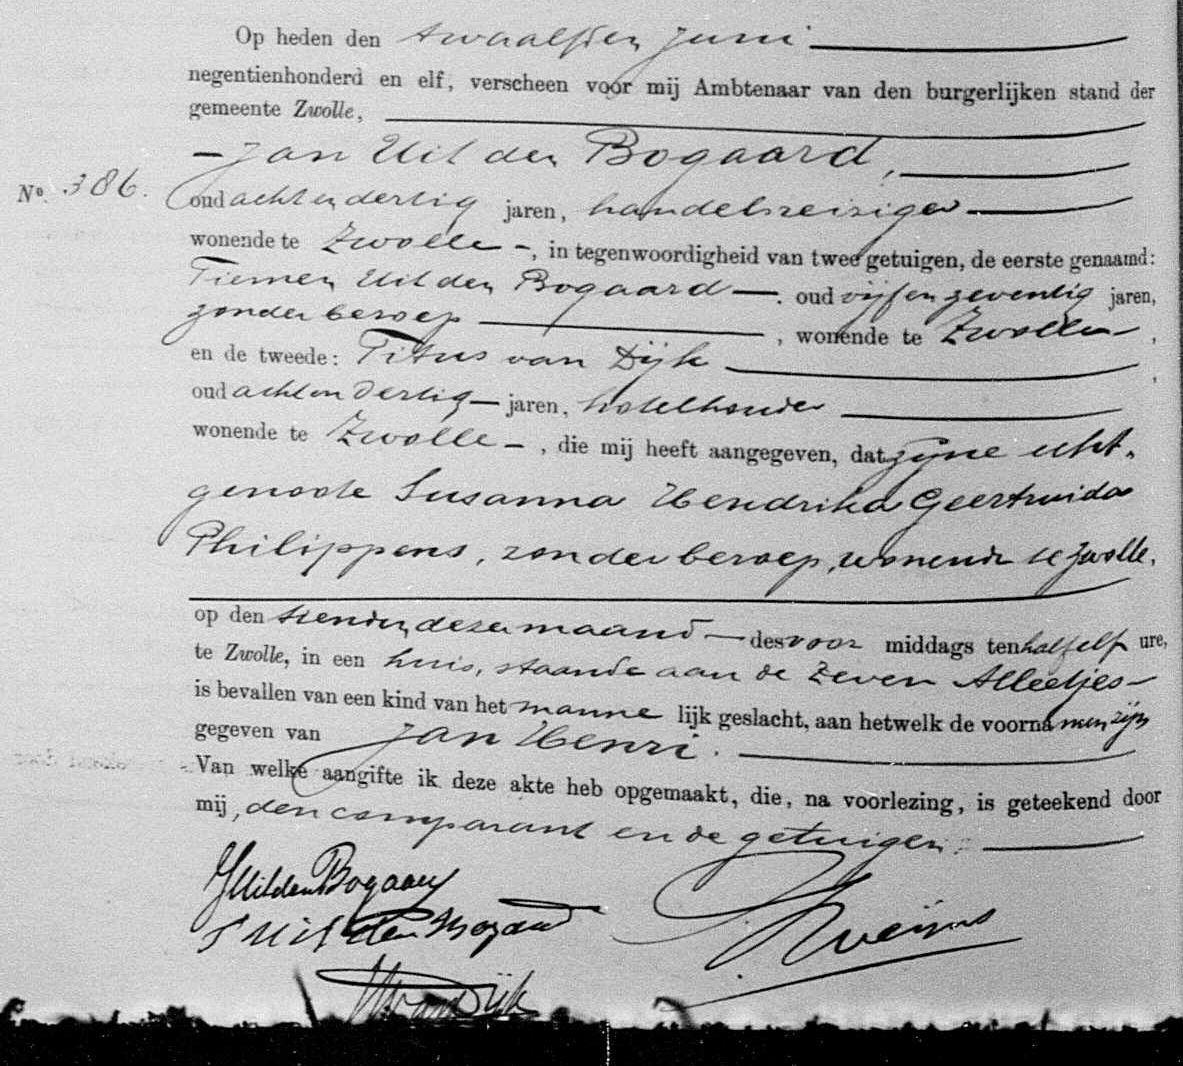 Op heden den twaalfden Juni
negentienhonderd en elf, verscheen voor mij Ambtenaar van den burgerlijken stand der
gemeente Zwolle,
Jan Uit den Bogaard,
No. 386.
oud acht en dertig jaren, handelsreiziger
wonende te Zwolle -, in tegenwoordigheid van twee getuigen, de eerste genaamd:
Tiemen Uit den Bogaard —. oud vijf en zeventig jaren,
zonder beroep , wonende te Zwolle ,
en de tweede: Titus van Dijk ,
oud acht en dertig — jaren, hotelhouder
wonende te Zwolle - , die mij heeft aangegeven, dat zijne echt-
genoote Susanna Hendrika Geertruida
Philippens, zonder beroep, wonende te Zwolle,
op den tienden dezer maand — des voor middags ten half elf ure,
te Zwolle, in een huis, staande aan de Zeven Alleetjes -
is bevallen van een kind van het manne lijk geslacht, aan hetwelk de voorna men zijn
gegeven van Jan Henri.
Van welke aangifte ik deze akte heb opgemaakt, die, na voorlezing, is geteekend door
mij, den comparant en de getuigen.
J Uit den Bogaard
T Uit den Bogaard
T van Dijk